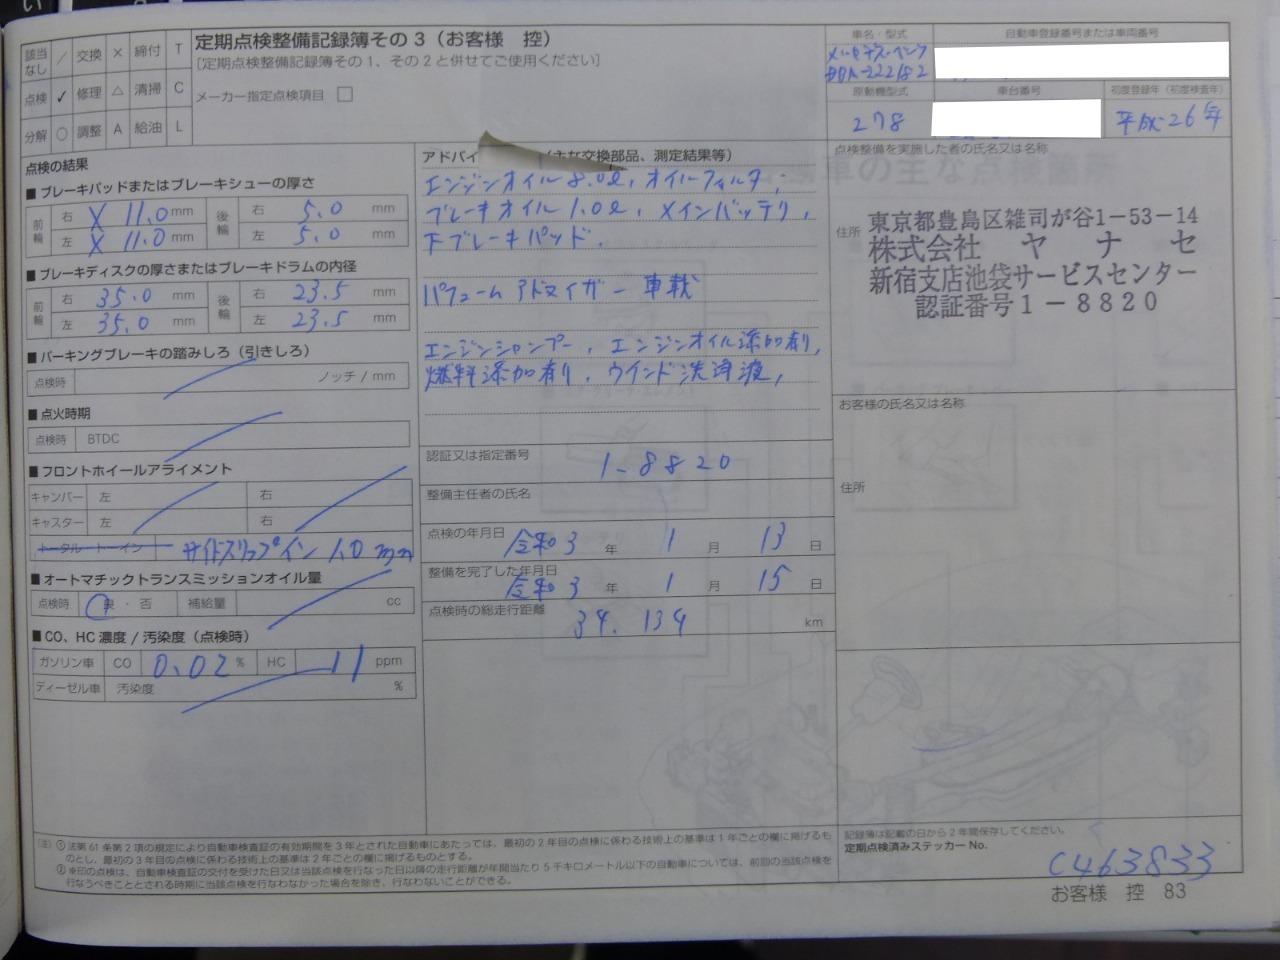 該当なし ／ 交換 × 締付 T
点検 ✓ 修理 △ 清掃 C
分解 ○ 調整 A 給油 L
定期点検整備記録簿その3（お客様　控）
［定期点検整備記録簿その1、その2と併せてご使用ください］
メーカー指定点検項目 □
車名・型式
メーセデス・ベンツ
DBA-222182
自動車登録番号または車両番号
原動機型式
278
車台番号
初度登録年（初度検査年）
平成26年
点検の結果
■ブレーキパッドまたはブレーキシューの厚さ
前輪 右 X 11.0 mm 後輪 右 5.0 mm
左 X 11.0 mm 左 5.0 mm
■ブレーキディスクの厚さまたはブレーキドラムの内径
前輪 右 35.0 mm 後輪 右 23.5 mm
左 35.0 mm 左 23.5 mm
■パーキングブレーキの踏みしろ（引きしろ）
点検時 ノッチ / mm
■点火時期
点検時 BTDC
■フロントホイールアライメント
キャンバー 左 右
キャスター 左 右
トータル・トーイン サイドスリップイン 1.0 mm
■オートマチックトランスミッションオイル量
点検時 良・否 補給量 cc
■CO、HC 濃度 / 汚染度（点検時）
ガソリン車 CO 0.02 % HC 11 ppm
ディーゼル車 汚染度 %
アドバイ （主な交換部品、測定結果等）
エンジンオイル8.0ℓ, オイルフィルタ,
ブレーキオイル1.0ℓ, メインバッテリ,
下ブレーキパッド.
パフューム アトマイザー 車載
エンジンシャンプー, エンジンオイル添加有り,
燃料添加有り, ウインド洗浄液,
認証又は指定番号 1-8820
整備主任者の氏名
点検の年月日 令和3 年 1 月 13 日
整備を完了した年月日 令和3 年 1 月 15 日
点検時の総走行距離 34.134 km
点検整備を実施した者の氏名又は名称
住所
東京都豊島区雑司が谷1－53－14
株式会社　ヤ　ナ　セ
新宿支店池袋サービスセンター
認証番号1－8820
お客様の氏名又は名称
住所
（注）①法第61条第2項の規定により自動車検査証の有効期間を3年とされた自動車にあたっては、最初の2年目の点検に係わる技術上の基準は1年ごとの欄に掲げるも
のとし、最初の3年目の点検に係わる技術上の基準は2年ごとの欄に掲げるものとする。
②※印の点検は、自動車検査証の交付を受けた日又は当該点検を行なった日以降の走行距離が年間当たり5千キロメートル以下の自動車については、前回の当該点検を
行なうべきこととされる時期に当該点検を行なわなかった場合を除き、行なわないことができる。
記録簿は記載の日から2年間保存してください。
定期点検済みステッカー No.
C463833
お客様　控　83